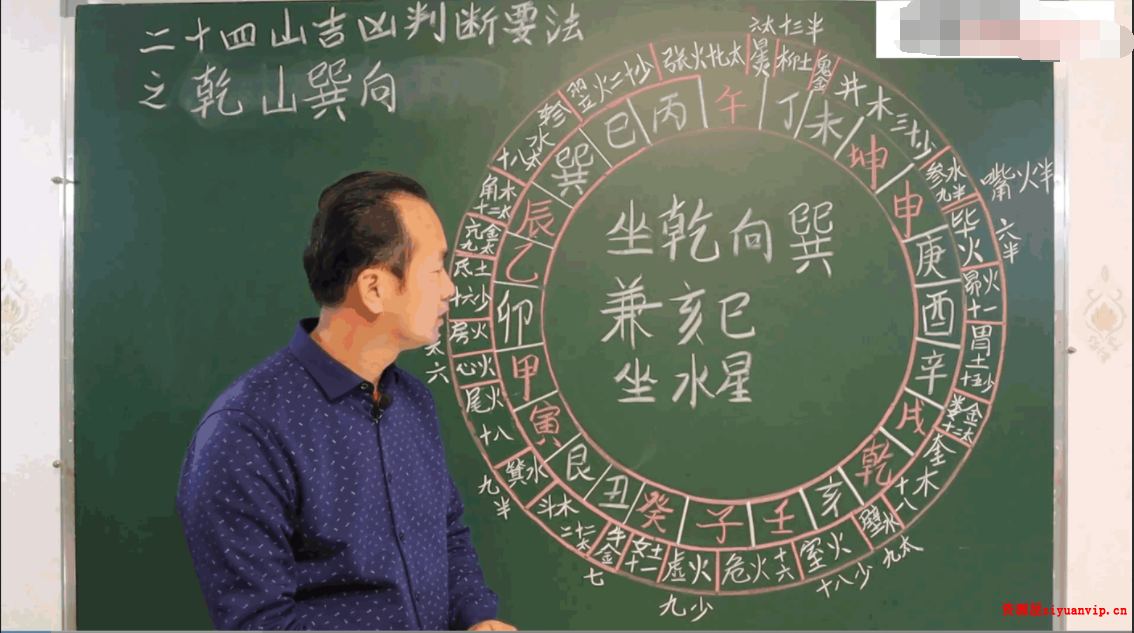 二十四山吉凶判断要法
之乾山巽向
坐乾向巽
兼亥巳
坐水星
午
丁
未
坤
申
庚
酉
辛
戌
乾
亥
壬
子
癸
丑
艮
寅
甲
卯
乙
辰
巽
巳
丙
张火十七太
星火
六太
柳土
十三半
鬼金
井木三十少
参水
九半
嘴火半
毕火
六半
昴火
十一
胃土
十五少
娄金
十二太
奎木
十八
壁水
九太
室火
十八少
危火
十六
虚火
九少
女土
十一
牛金
七
斗木
二十二太
箕水
九半
尾火
十八
心火
六
房火
太
氐土
十六少
亢金
九太
角木
十二太
轸水
十八太
翌火二十少
siyuanvip.cn